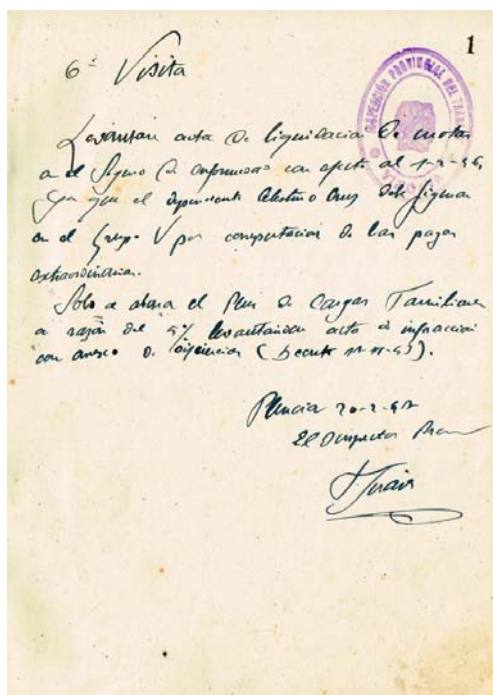 1
6ª Visita
INSPECCIÓN PROVINCIAL DEL TRABAJO
Levantase acta de liquidacion de cuotas
en el Seguro de enfermedad con efecto al
que el dependiente Celestino Cruz debe figurar
en el Grupo V por computacion de las pagas
extraordinarias.
Solo se abona el Plus de Cargas Familiares
a razon del 5% levantandose acta de infraccion
con anexo de diferencias (Decreto
20-2-
El Inspector